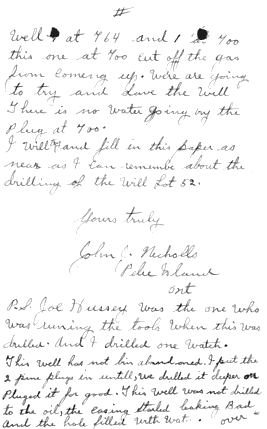 #
Well at 764 and 1 700
this one at 700 cut off the gas
from comeing up. Were are going
to try and save the Well
There is no Water going by the
Plug at 700.
I Will and fill in this paper as
near as I can remembe about the
drilling of the Will Lot 52.
Yours truly
John C. Nicholls
Pelee Island
Ont
P.S. Joe Hussey was the one who
was runing the tools when this was
drilled. And I drilled one Watch.
This Well has not bin abandoned. I put the
2 pine plugs in untill, we drilled it deeper or
Pluged it for good. This Well was not drilled
to the oil, the casing started leaking Bad
and the hole filled with Wat.. over